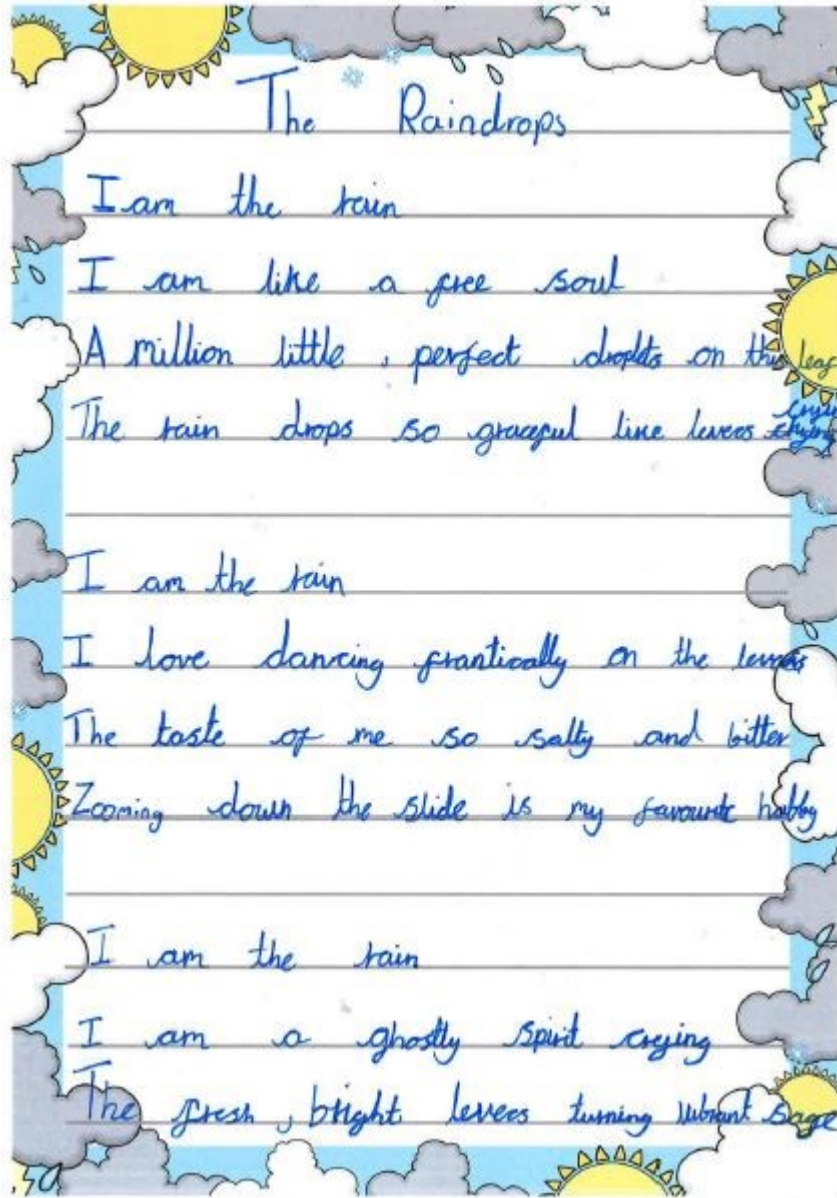 The Raindrops
I am the rain
I am like a free soul
A million little, perfect droplets on the leaf
The rain drops so graceful like levers
I am the rain
I love dancing frantically on the
The taste of me so salty and bitter
Zooming down the slide is my favourite hobby
I am the rain
I am a ghostly spirit creying
The fresh, bright levers turning vibrant sage